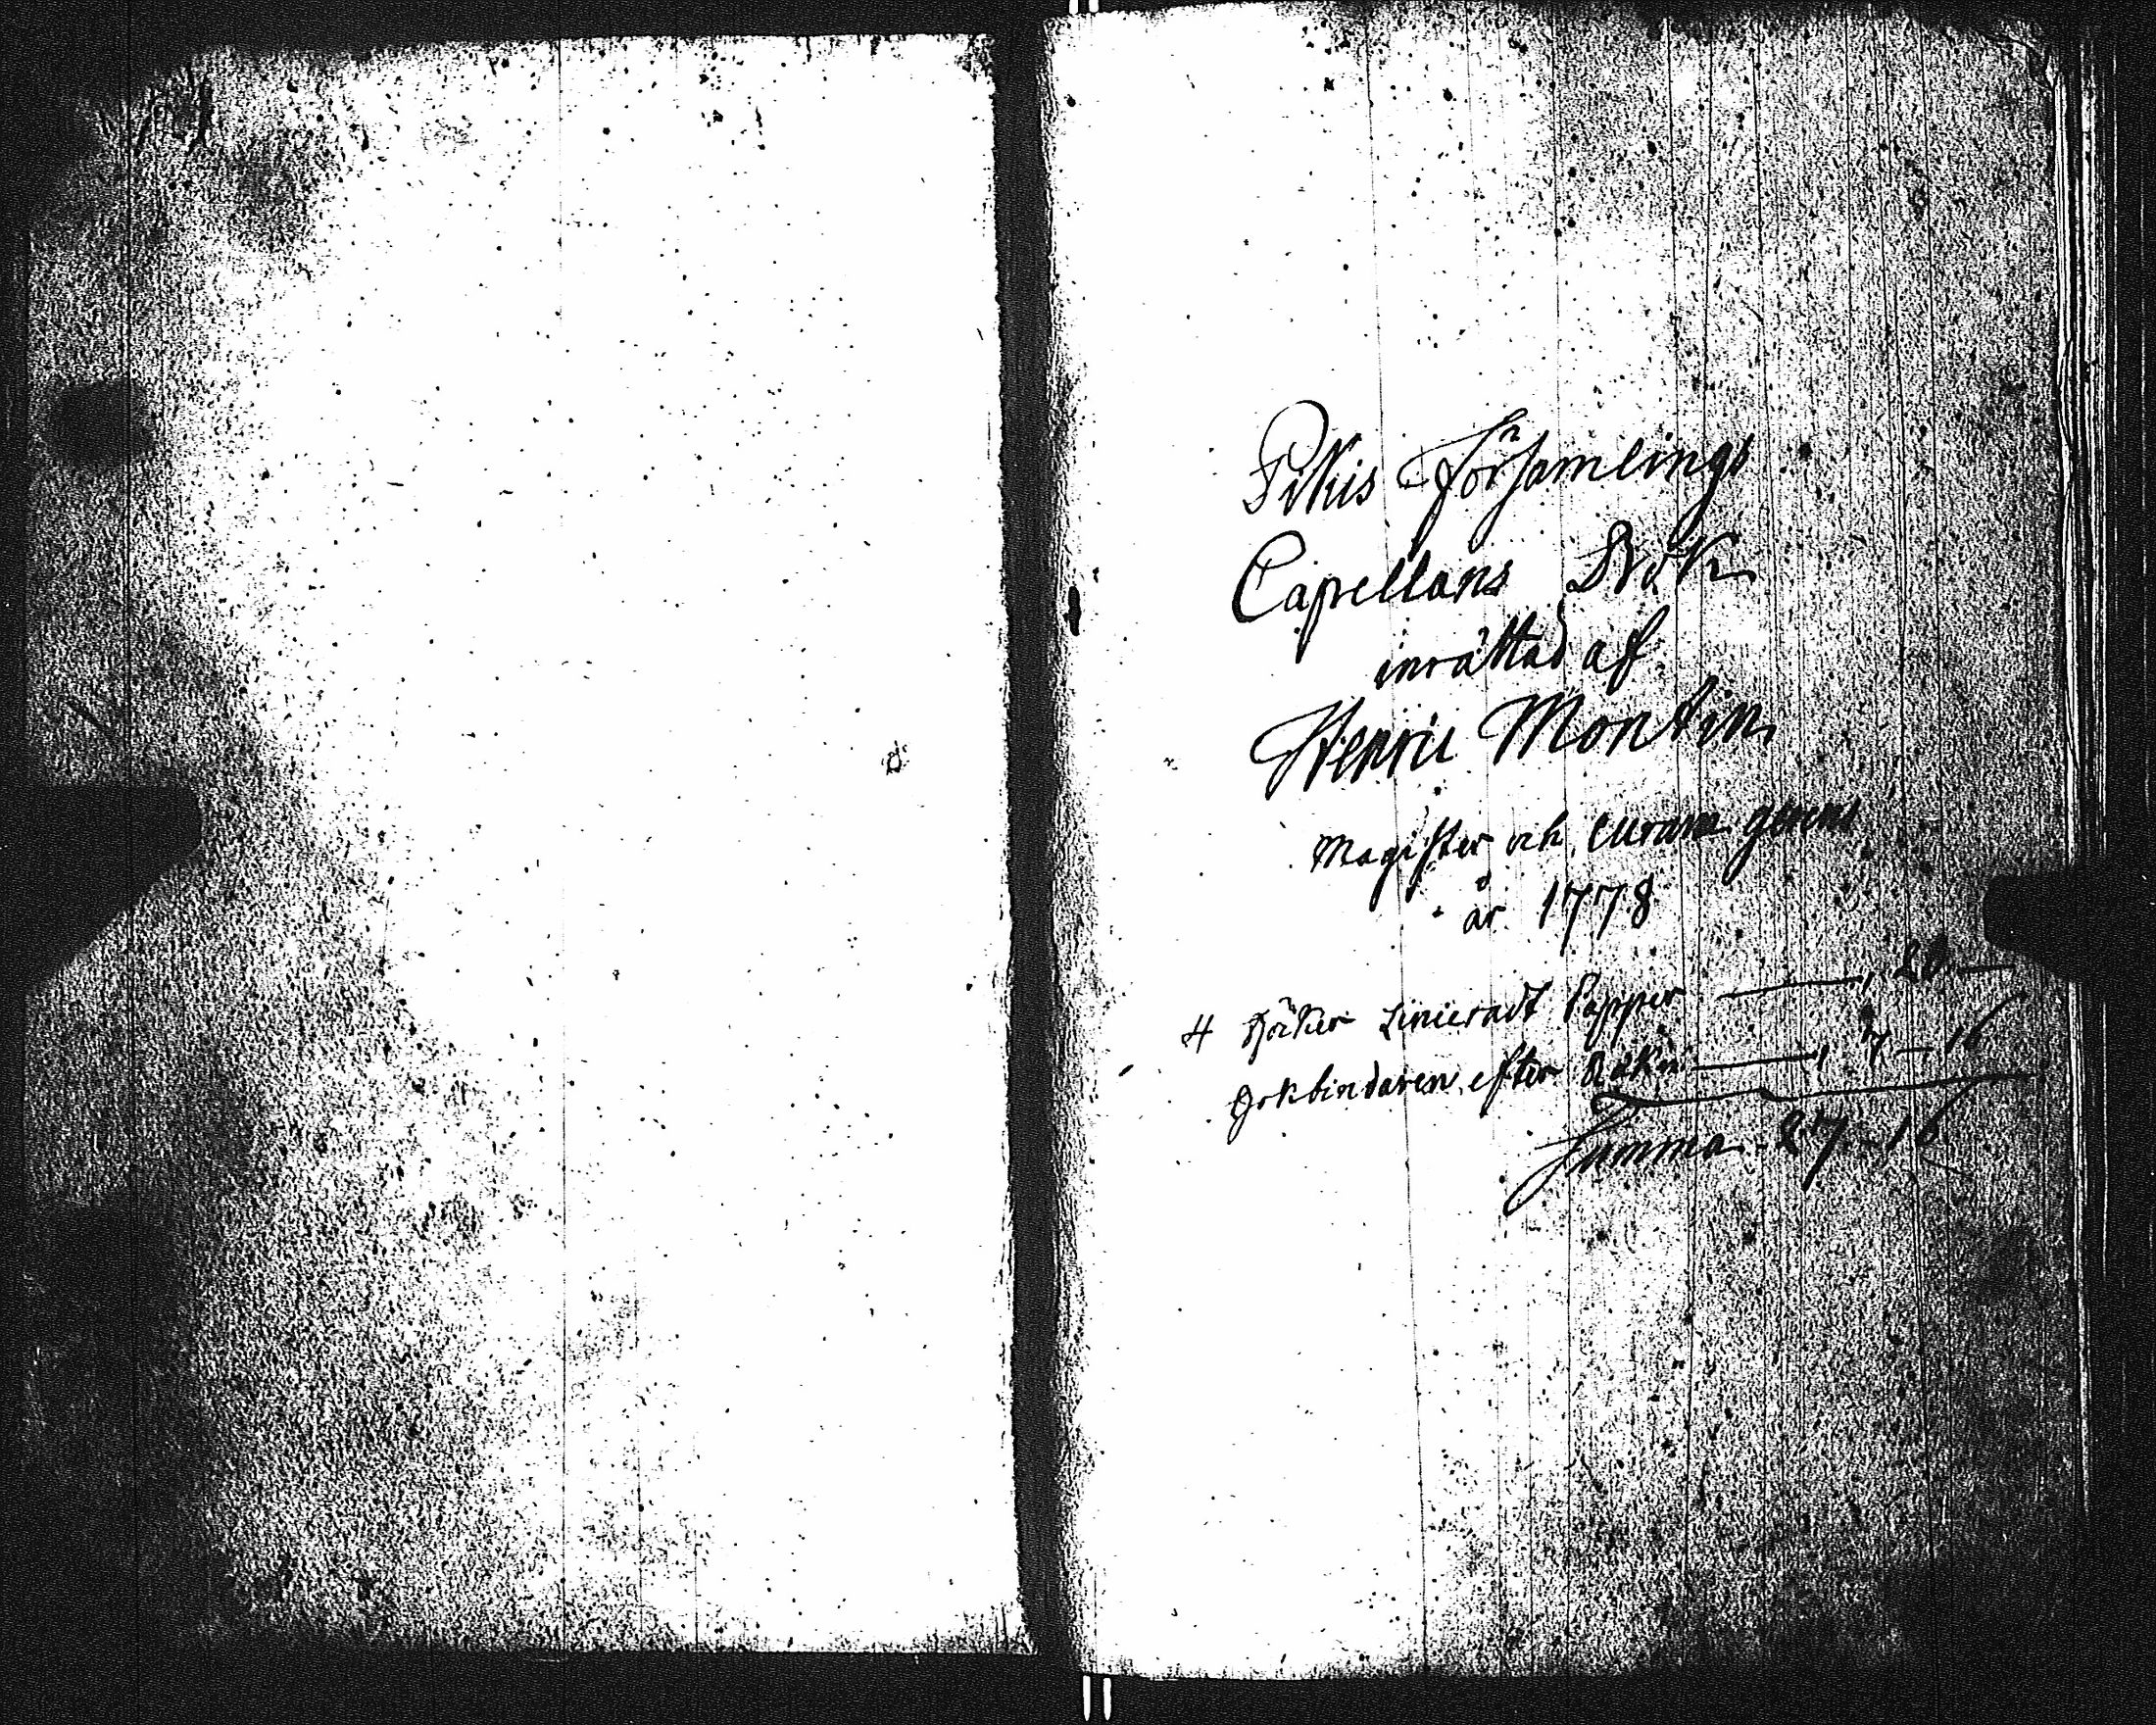 Pikis Församlings
Capellans Bok
inrättad af
Henric Montin
Magister och Curam gerens
år 1778
4 Böcker Linieradt Papper — 20 —
Bokbindaren efter Räkn — 7 — 16
Summa 27 - 16